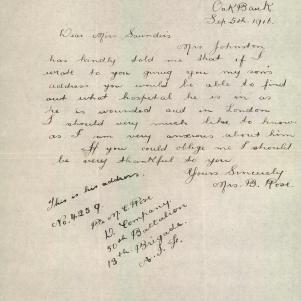 Oak Bank
Sep 5th 1916.
Dear Mrs Saunders
Mrs Johnston
has kindly told me that if I
wrote to you giving you my son's
address you would be able to find
out what hospital he is in as
he is wounded and in London
I should very much like to know
as I am very anxious about him
If you could oblige me I should
be very thankful to you
Yours Sincerely
Mrs. B. Rose.
This is his address.
No. 4259. Pte M. C. Rose
D. Company
50th Battalion
13th Brigade.
A. I. F.